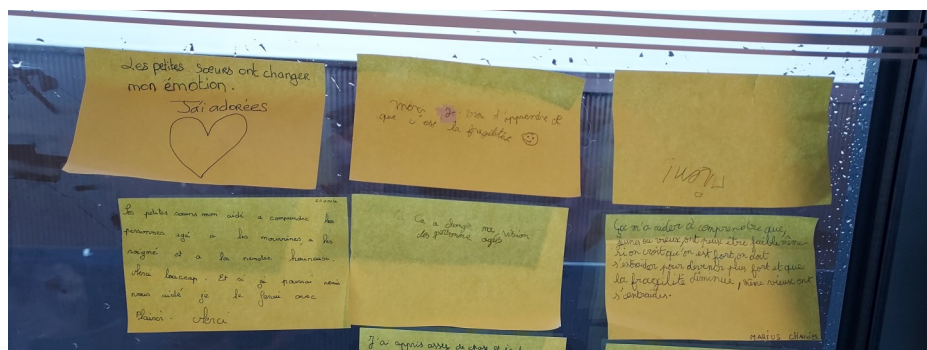 Les petites sœurs ont changer
mon émotion.
J'ai adorées
merci de m'on d'apprendre ce
que c'est la fragilitée
Les petites sœurs mon aidé a comprendre les
personnes agé a les nourrires a les
soigné et a la rendre heureuse.
Merci baucoup. Et si je pouvai venir
vous aidé je le ferai avec
Plaisir. Merci
Ca a changé ma vision
des personne agés
Ça m'a aider à comprendre que,
jeune ou vieux ont peut être faible même
si on croit qu'on est fort, on doit
s'entraider pour devenir plus fort et que
la fragilité diminue, même vieux ont
s'entraides.
MARIUS
J'ai appris asses de chose